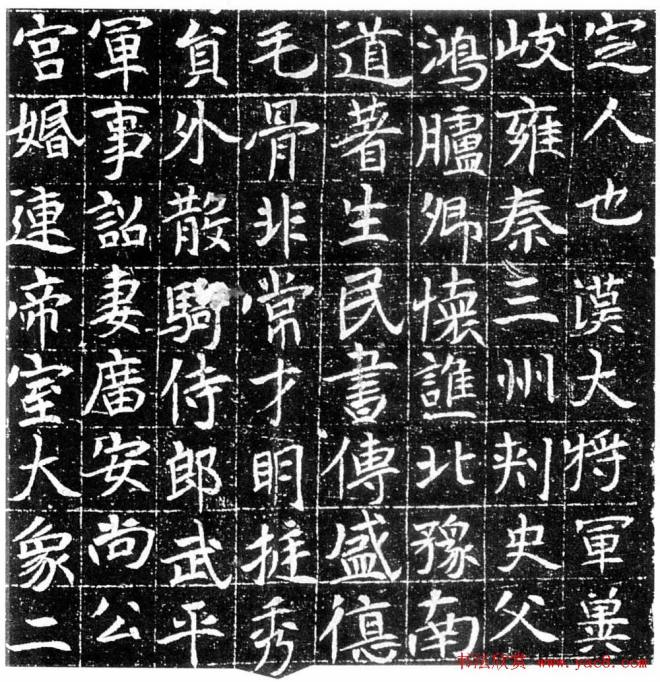 定人也漢大將軍冀
岐雍秦三州刺史父
鴻臚卿懷譙北豫南
道著生民書傳盛德
毛骨非常才明挺秀
員外散騎侍郎武平
軍事詔妻廣安尚公
宮婚連帝室大象二
书法欣赏 www.yac8.com